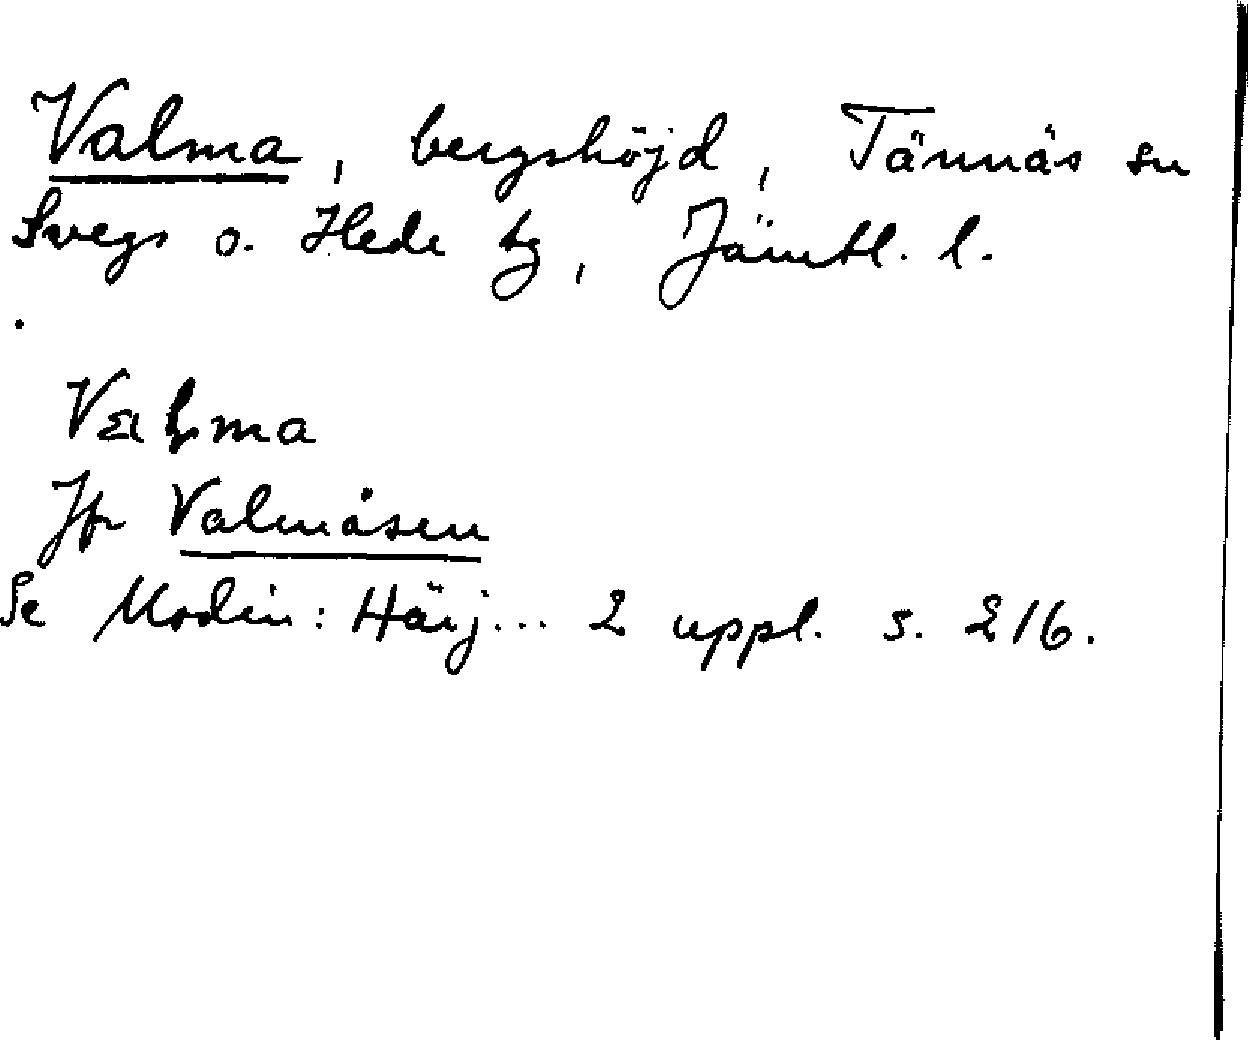 Valma, bergshöjd, Tännäs sn
Svegs o. Hede tg, Jämtl. l.
Jfr Valmåsen
Se Modin: Härj... 2 uppl. s. 216.